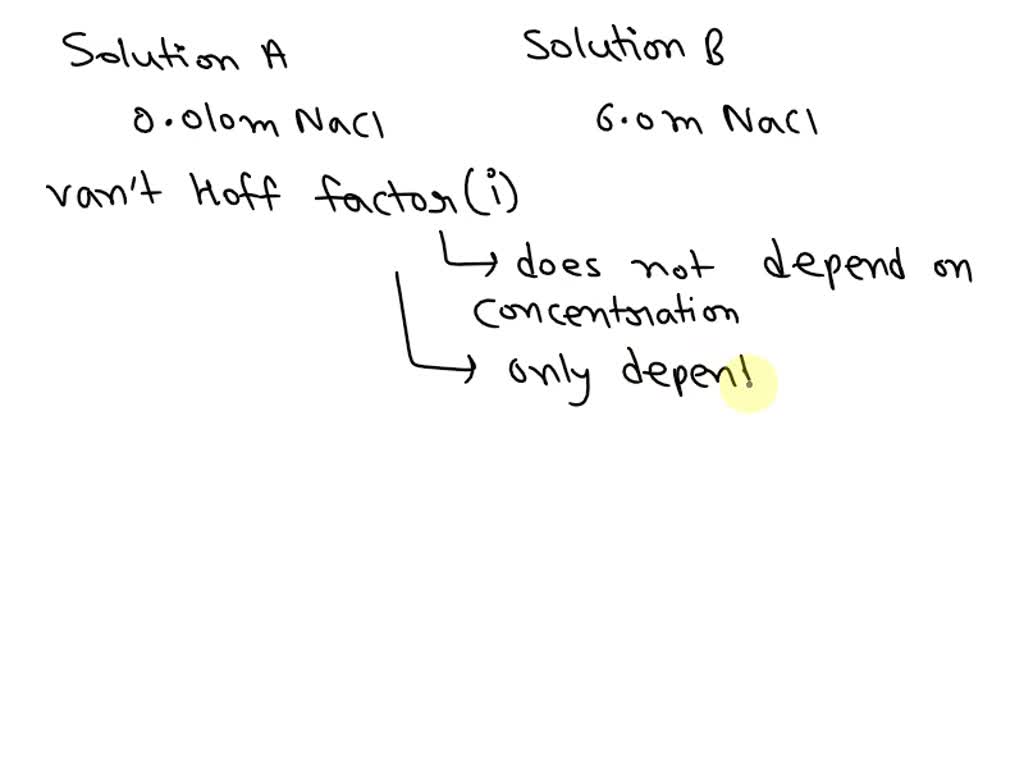 Solution A
Solution B
0.010m NaCl
6.0m NaCl
van't Hoff factor (i)
does not depend on
concentration
only depen